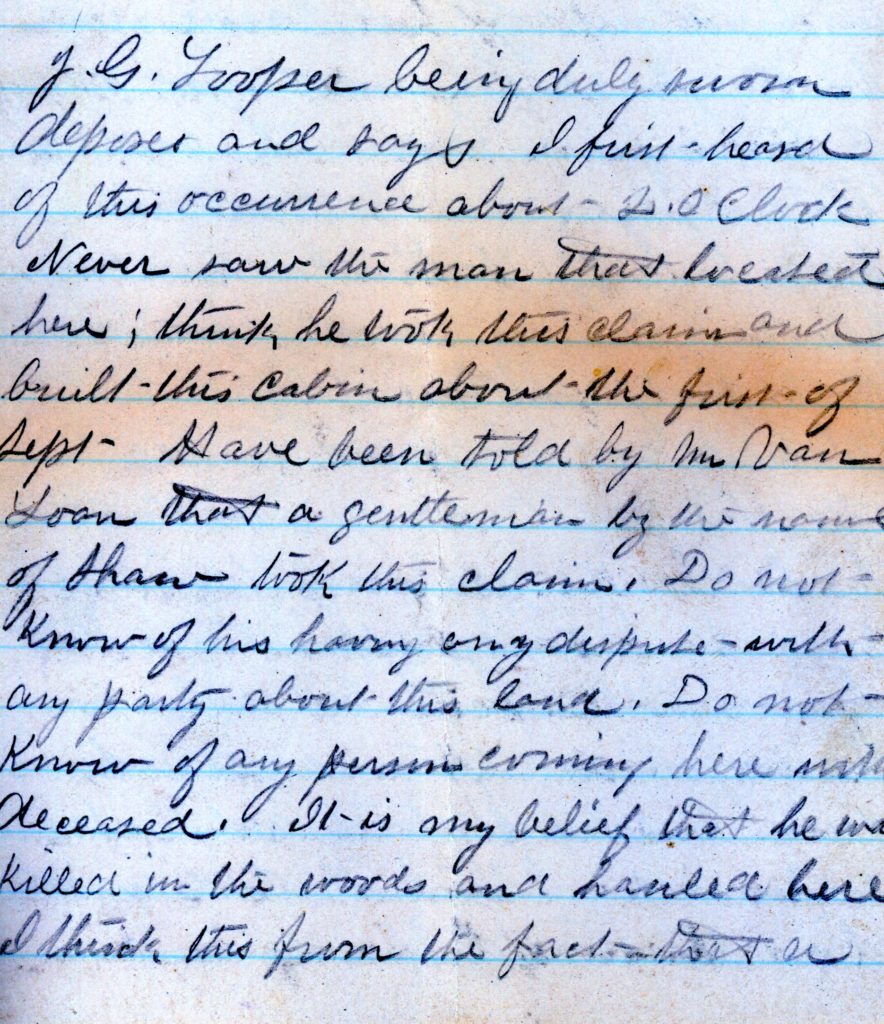 J. G. Looper being duly sworn
deposes and says I first heard
of this occurrence about 2. O Clock
Never saw the man that located
here; think he took this claim and
built this cabin about the first of
Sept Have been told by Mr Van
Loan that a gentleman by the name
of Shaw took this claim. Do not
Know of his having any dispute with
any party about this land. Do not
Know of any person coming here with
deceased. It is my belief that he wa
Killed in the woods and hauled here
I think this from the fact that a